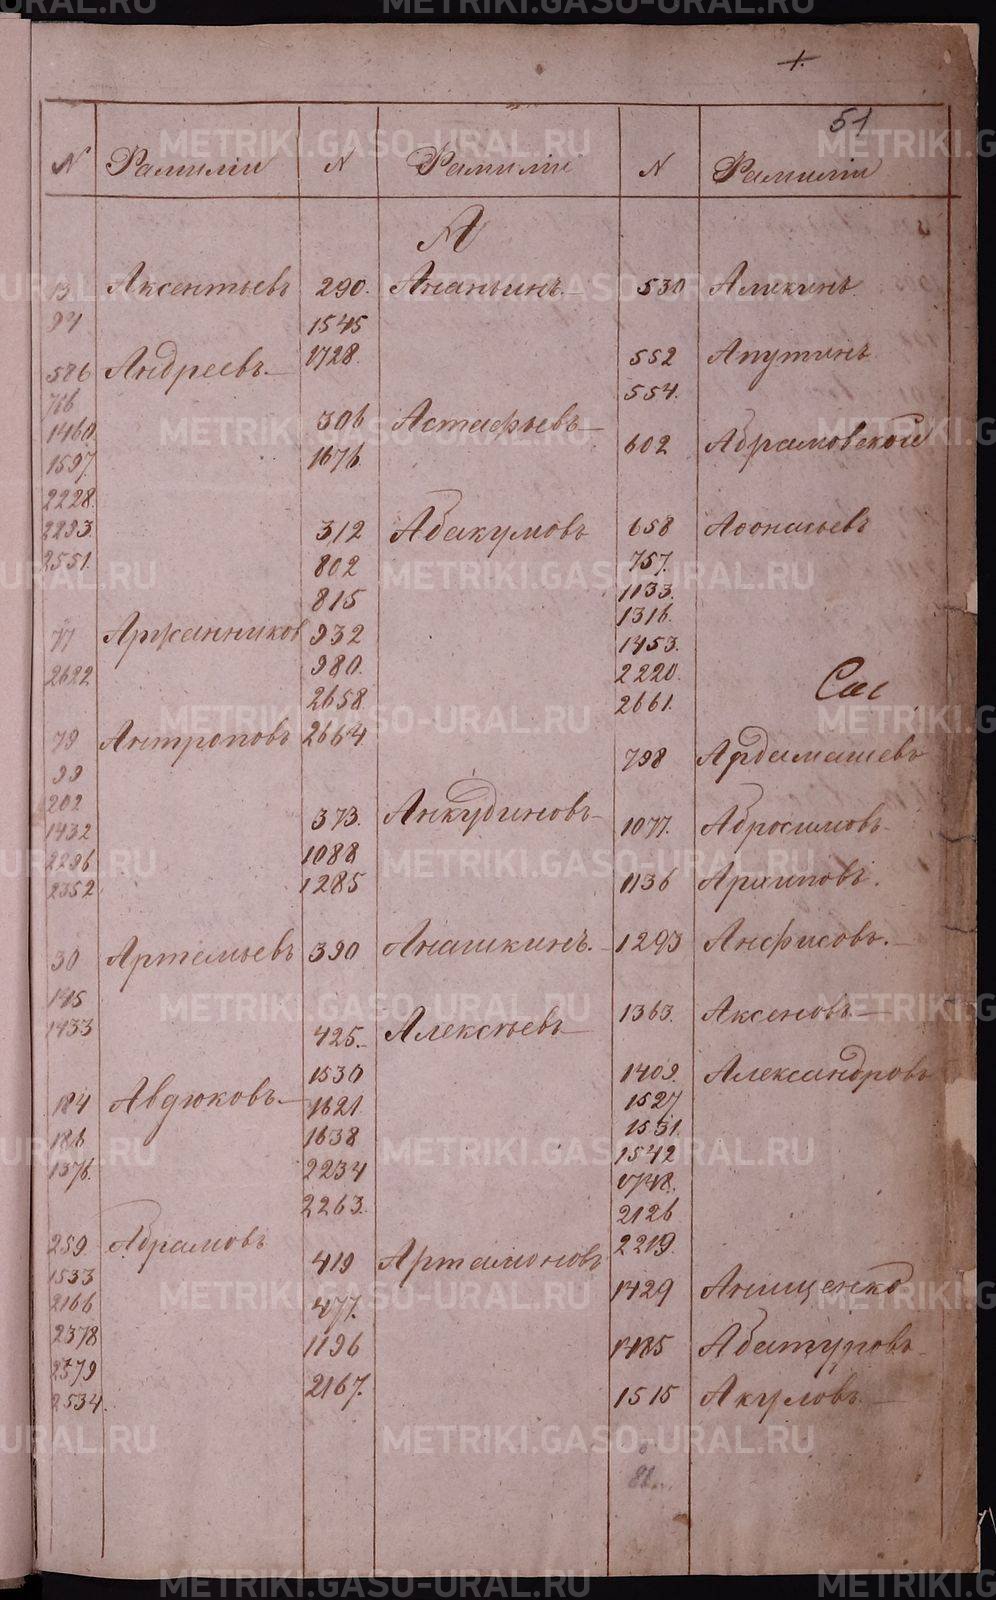 1.
51
N Фамиліи N Фамиліи N Фамиліи
А
13 Аксентьевъ
94
586 Андреевъ.
766
1460
1597
2228
2293
2551.
77 Аржанников
2622
79 Антроповъ
99
202
1432
2296
2352
30 Артемьевъ
145
1433
184 Авдюковъ.
186
1376.
259 Абрамовъ
1533
2166
2378
2379
2534.
290. Ананьинъ.
1545
1728
306 Астафьевъ
1676
312 Абакумовъ
802
815
932
980.
2658
2664
373. Анкудиновъ
1088
1285
390 Анашкинъ.
425. Алексѣевъ
1530
1621
1638
2234
2263.
419 Артамоновъ
477.
1196
2167.
530 Аликинъ
552 Апутинъ
554.
602 Абрамовской
658 Аѳонасьевъ
757.
1133.
1316.
1453.
2220.
2661.
798 Ардамашевъ
1077. Абросимовъ
1136 Архиповъ.
1293 Анфисовъ.
1363. Аксеновъ
1409. Александровъ
1527
1531.
1542
1748.
2126
2219.
1429 Анищенко
1485 Абатуровъ
1515 Акуловъ.
METRIKI.GASO-URAL.RU